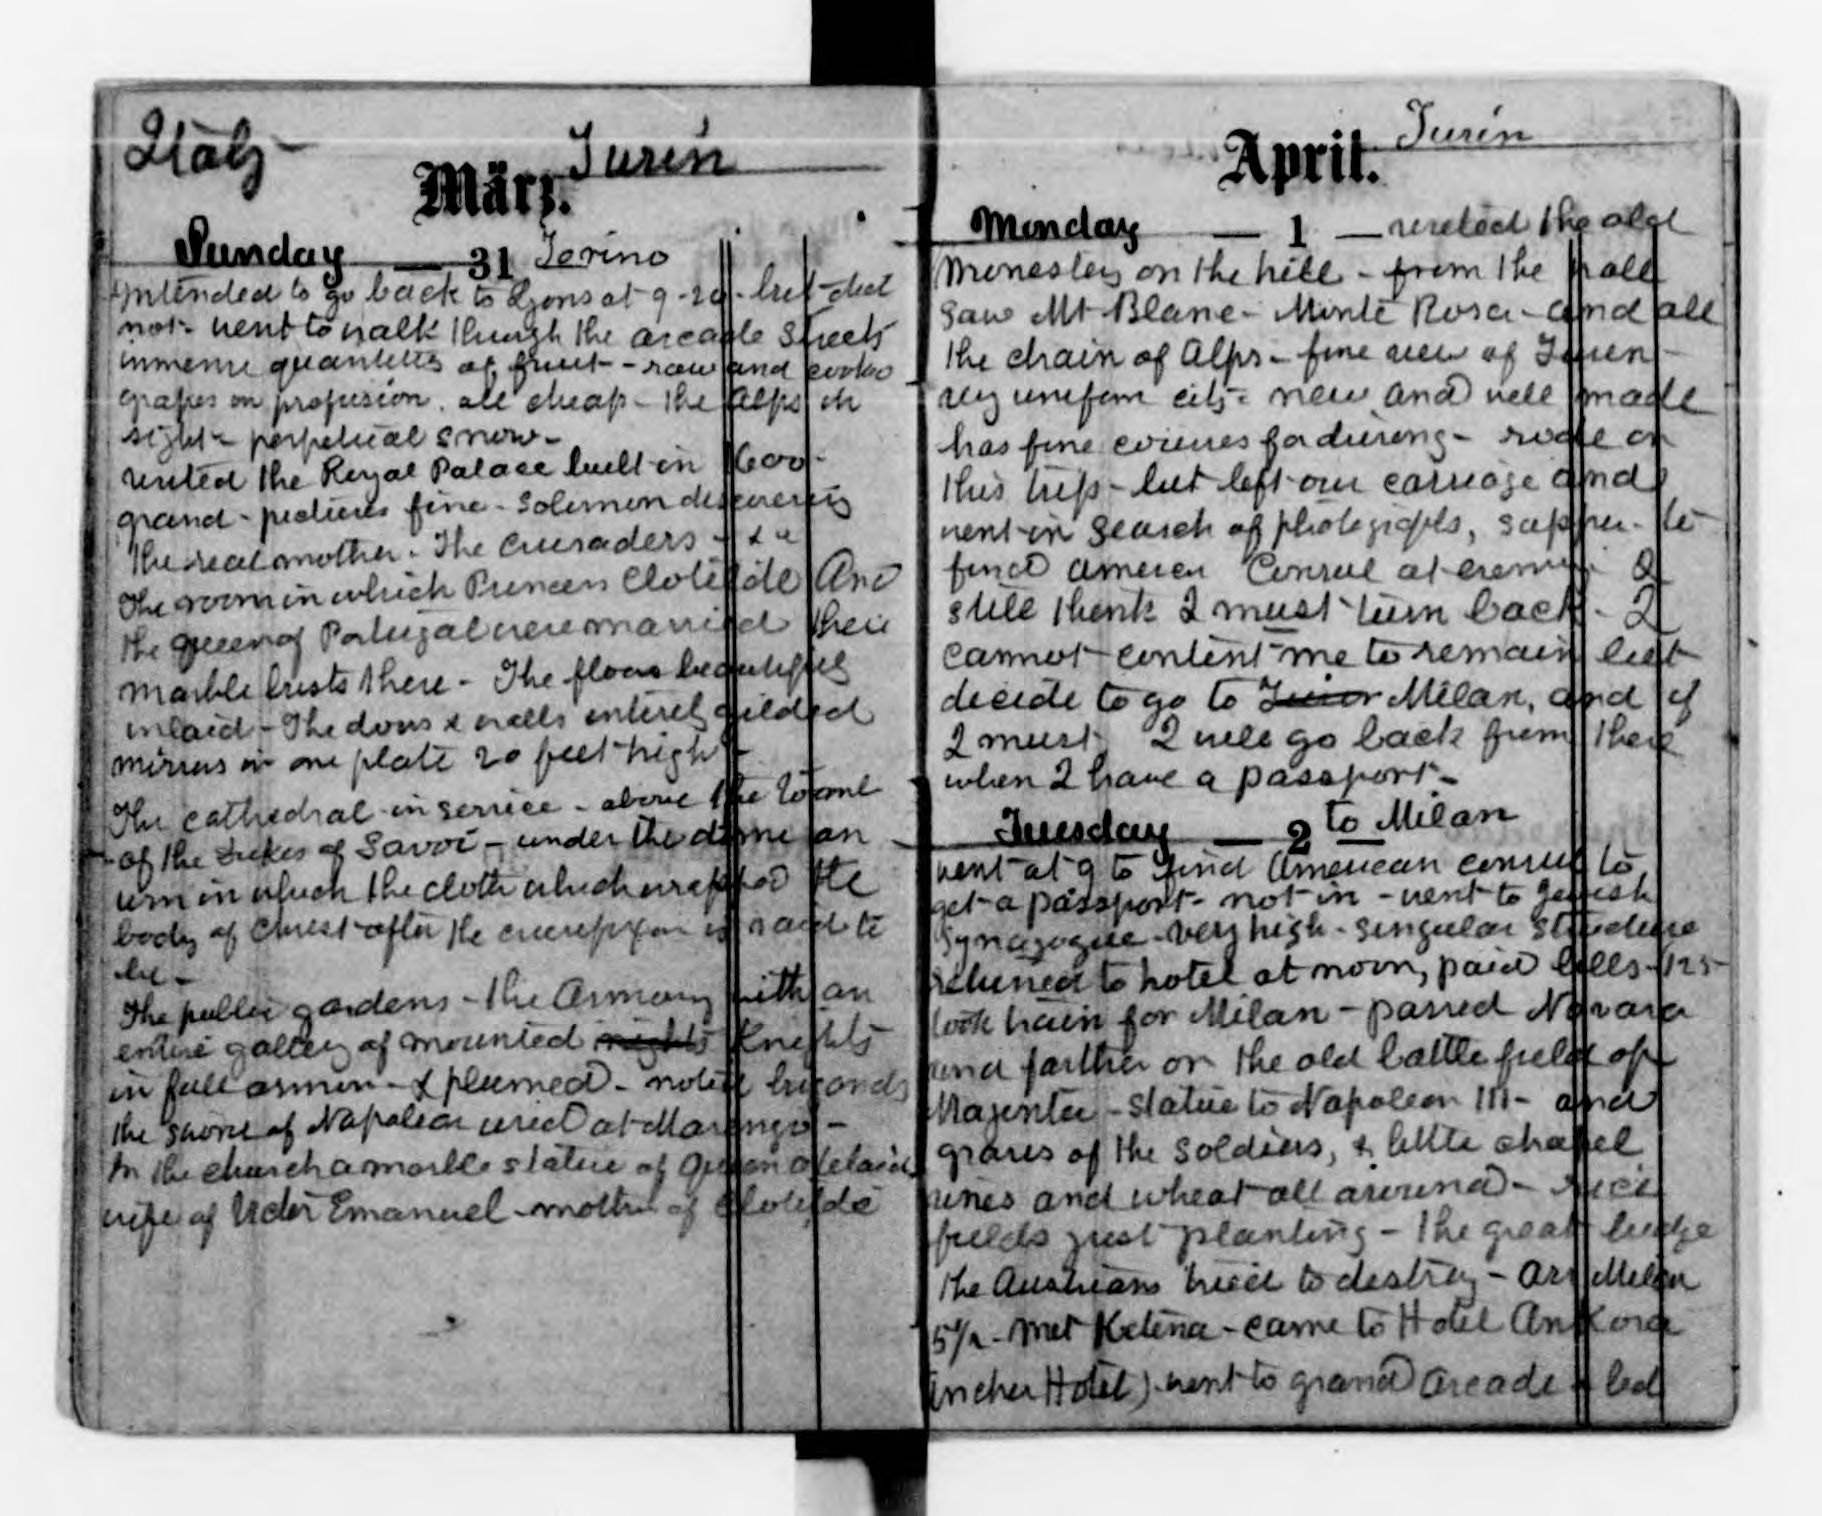 Italy
Turin
März.
Sunday — 31 Torino
Intended to go back to Lyons at 9-20 - but did
not - went to walk through the arcade streets
immense quantities of fruit - raw and cooked
grapes in profusion. all cheap - the Alps in
sight - perpetual snow -
visited the Royal Palace built in 1600 -
grand - pictures fine - Solomon discovering
the real mother - The Crusaders - &c
The room in which Princess Clotilde And
the queen of Portugal were married their
marble busts there - The floors beautifully
inlaid - The doors & walls entirely gilded
mirrors in one plate 20 feet high -
The cathedral in service - above the tomb
of the Dukes of Savoi - under the dome an
urn in which the cloth which wrapped the
body of Christ after the crucifixion is said to
be -
The public gardens - the Armory with an
entire gallery of mounted nights Knights
in full armor - & plumed - noted brigands
the sword of Napoleon used at Marengo -
In the church a marble statue of Queen Adelaid
wife of Victor Emanuel - mother of Clotilde
Turin
April.
Monday — 1 — visited the old
Monestey on the hill - from the hall
saw Mt Blanc - Monte Rosa - and all
the chain of Alps - fine view of Turin -
very uniform city - new and well made
has fine courses for driving - rode on
this trip - but left our carriage and
went in search of photographs, supper - to
find American Consul at evening I
still think I must turn back - I
cannot content me to remain but
decide to go to Milan, and if
I must I will go back from there
when I have a passport -
Tuesday — 2 — to Milan
went at 9 to find American consul to
get a passport - not in - went to Jewish
Synagogue - very high - singular structure
returned to hotel at noon, paid bills - 125 -
took train for Milan - passed Novara
and farther on the old battle field of
Majenta - statue to Napoleon III - and
graves of the soldiers, & little chapel
vines and wheat all around - rice
fields just planting - the great bridge
the Austrians tried to destroy - arr Milan
5½ - met Ketena - came to Hotel Ankora
(Ancher Hotel) went to grand Arcade & bed